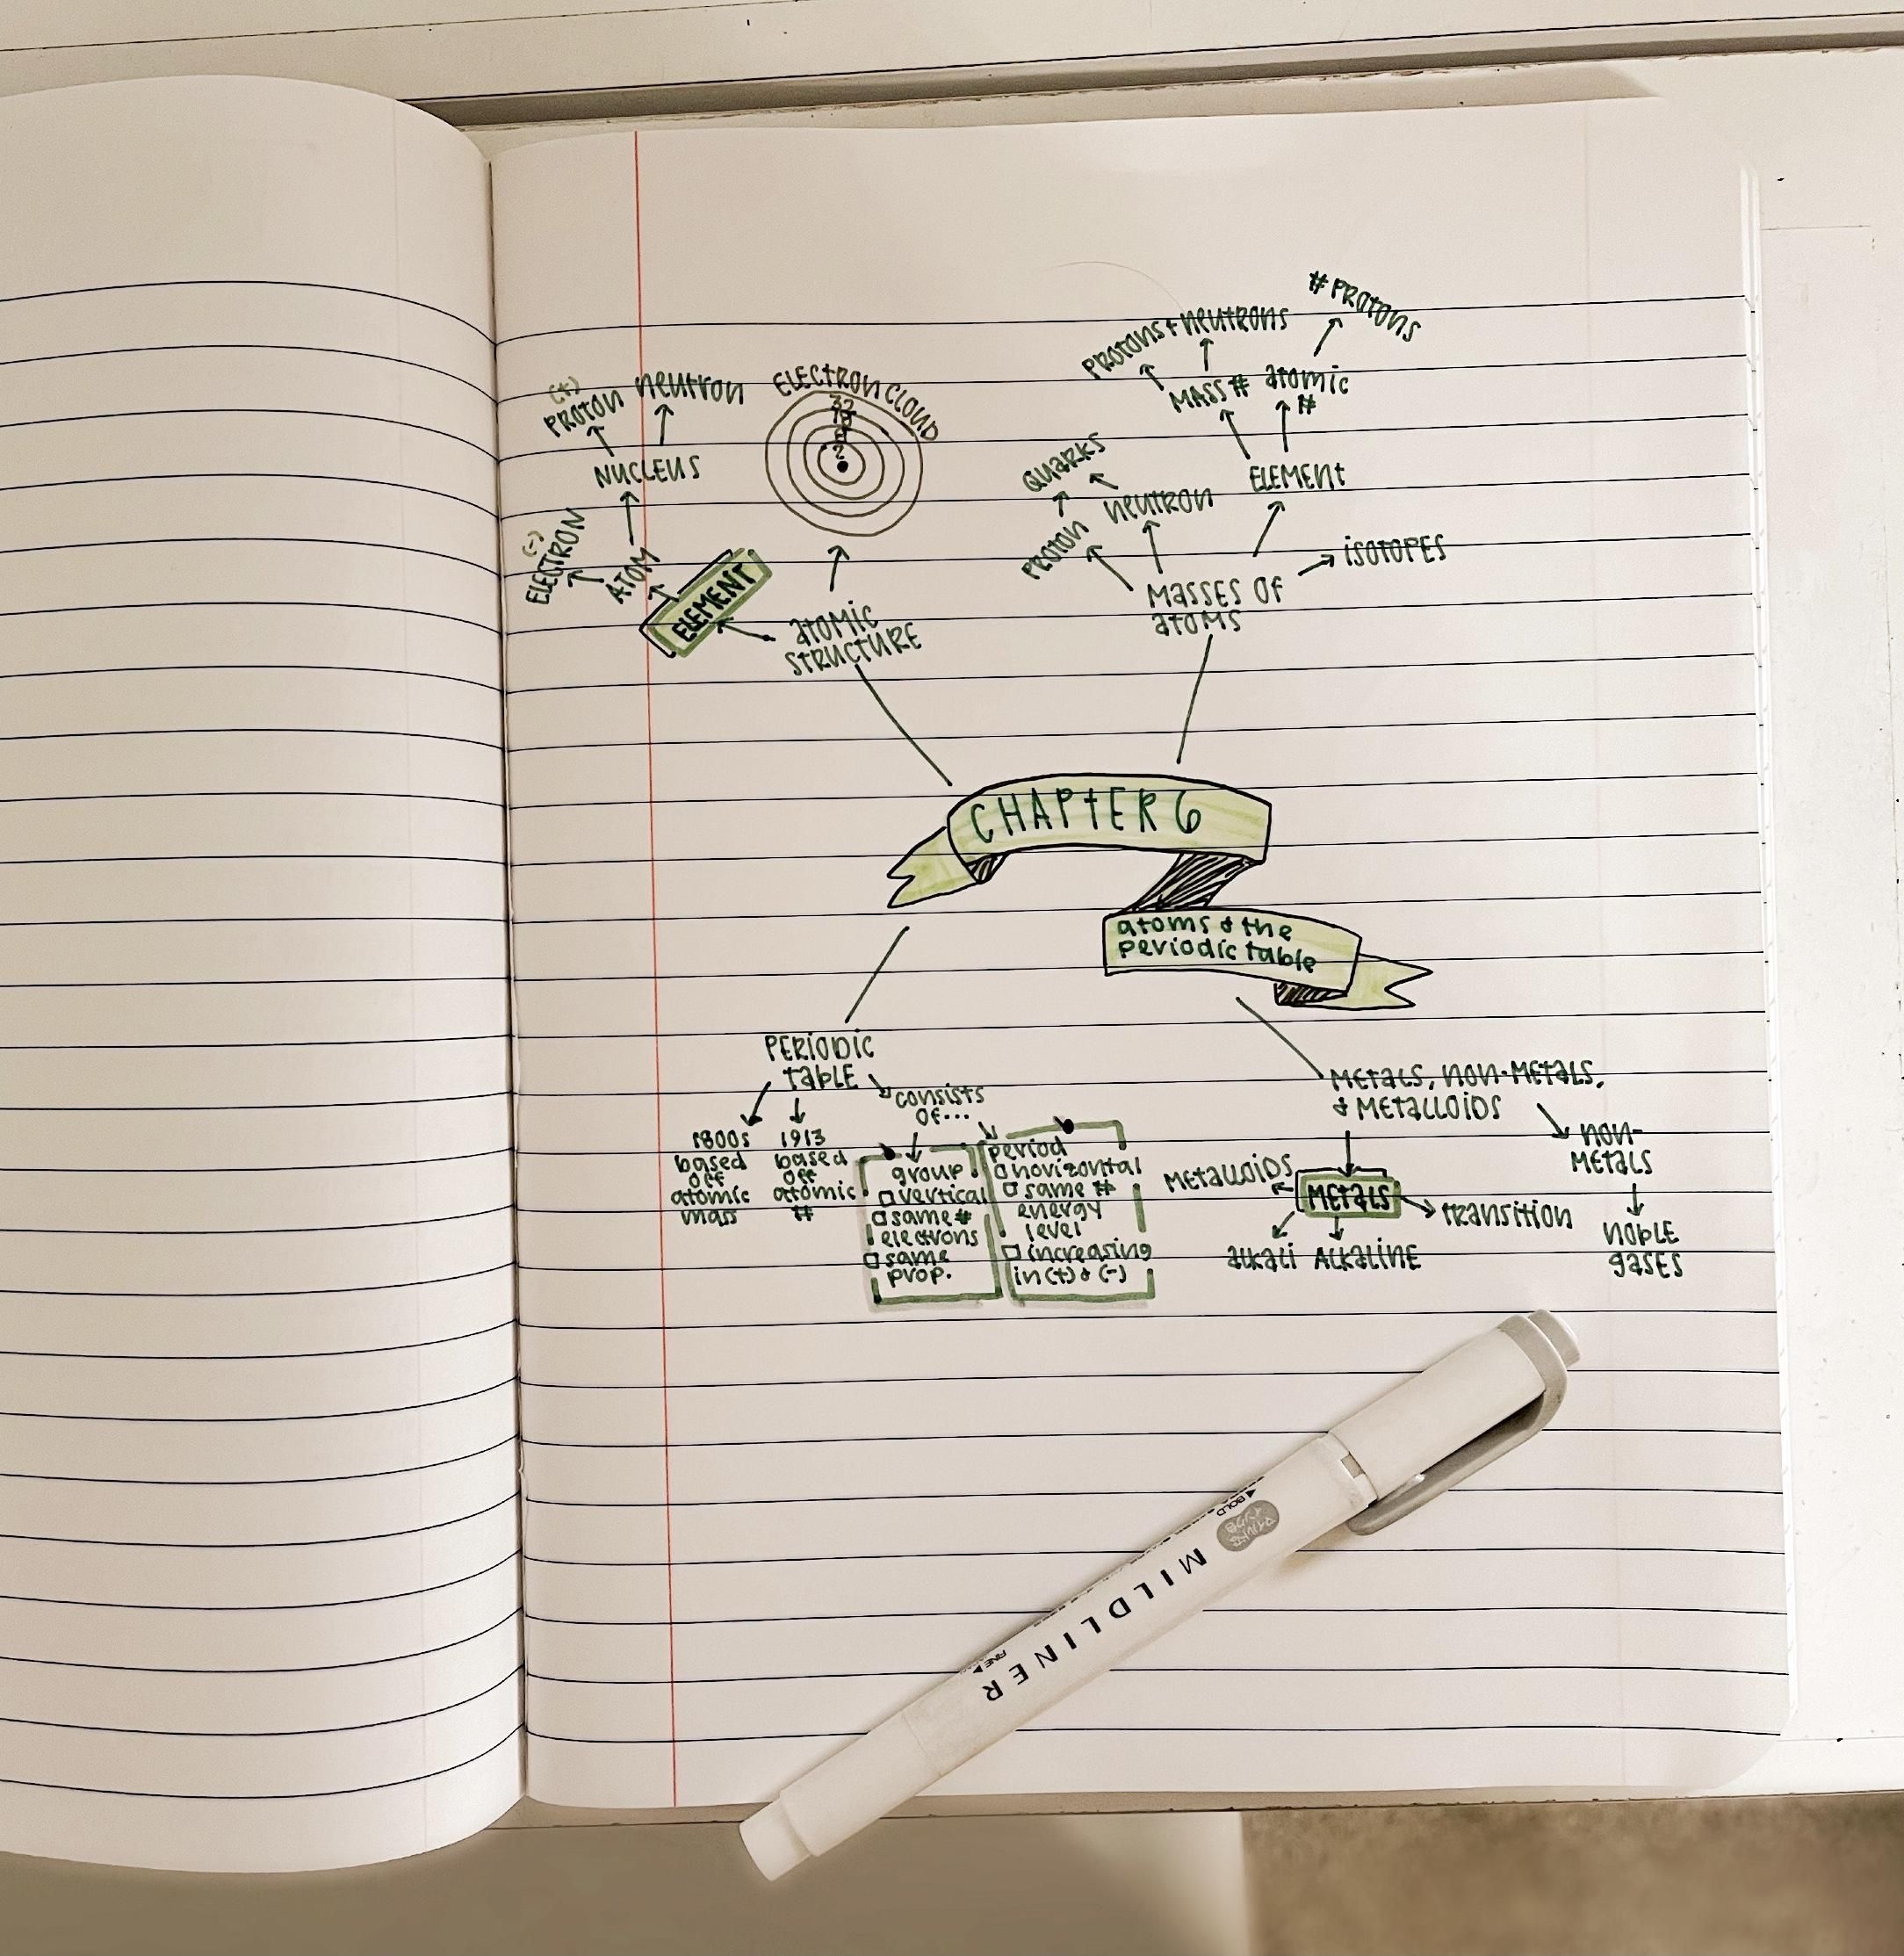 # PROTONS
PROTONS + NEUTRONS
MASS # atomic
#
(+)
PROTON neutron
ELECTRON CLOUD
32
18
8
2
NUCLEUS
QUARKS
neutron
PROTON
ELEMENt
isotopes
(-)
ELECTRON
ATOM
ELEMENT
atomic
structure
Masses of
atoms
CHAPtER 6
atoms & the
periodic table
PERIODIC
table
consists
of...
1800s
based
off
atomic
mass
1913
based
off
atomic
#
group
vertical
same #
electrons
same
prop.
period
horizontal
same #
energy
level
increasing
in (+) & (-)
Metals, non-metals,
& metalloids
non-
metals
noble
gases
metalloids
metals
transition
alkali
Alkaline
BOLD
MILDLINER
FINE